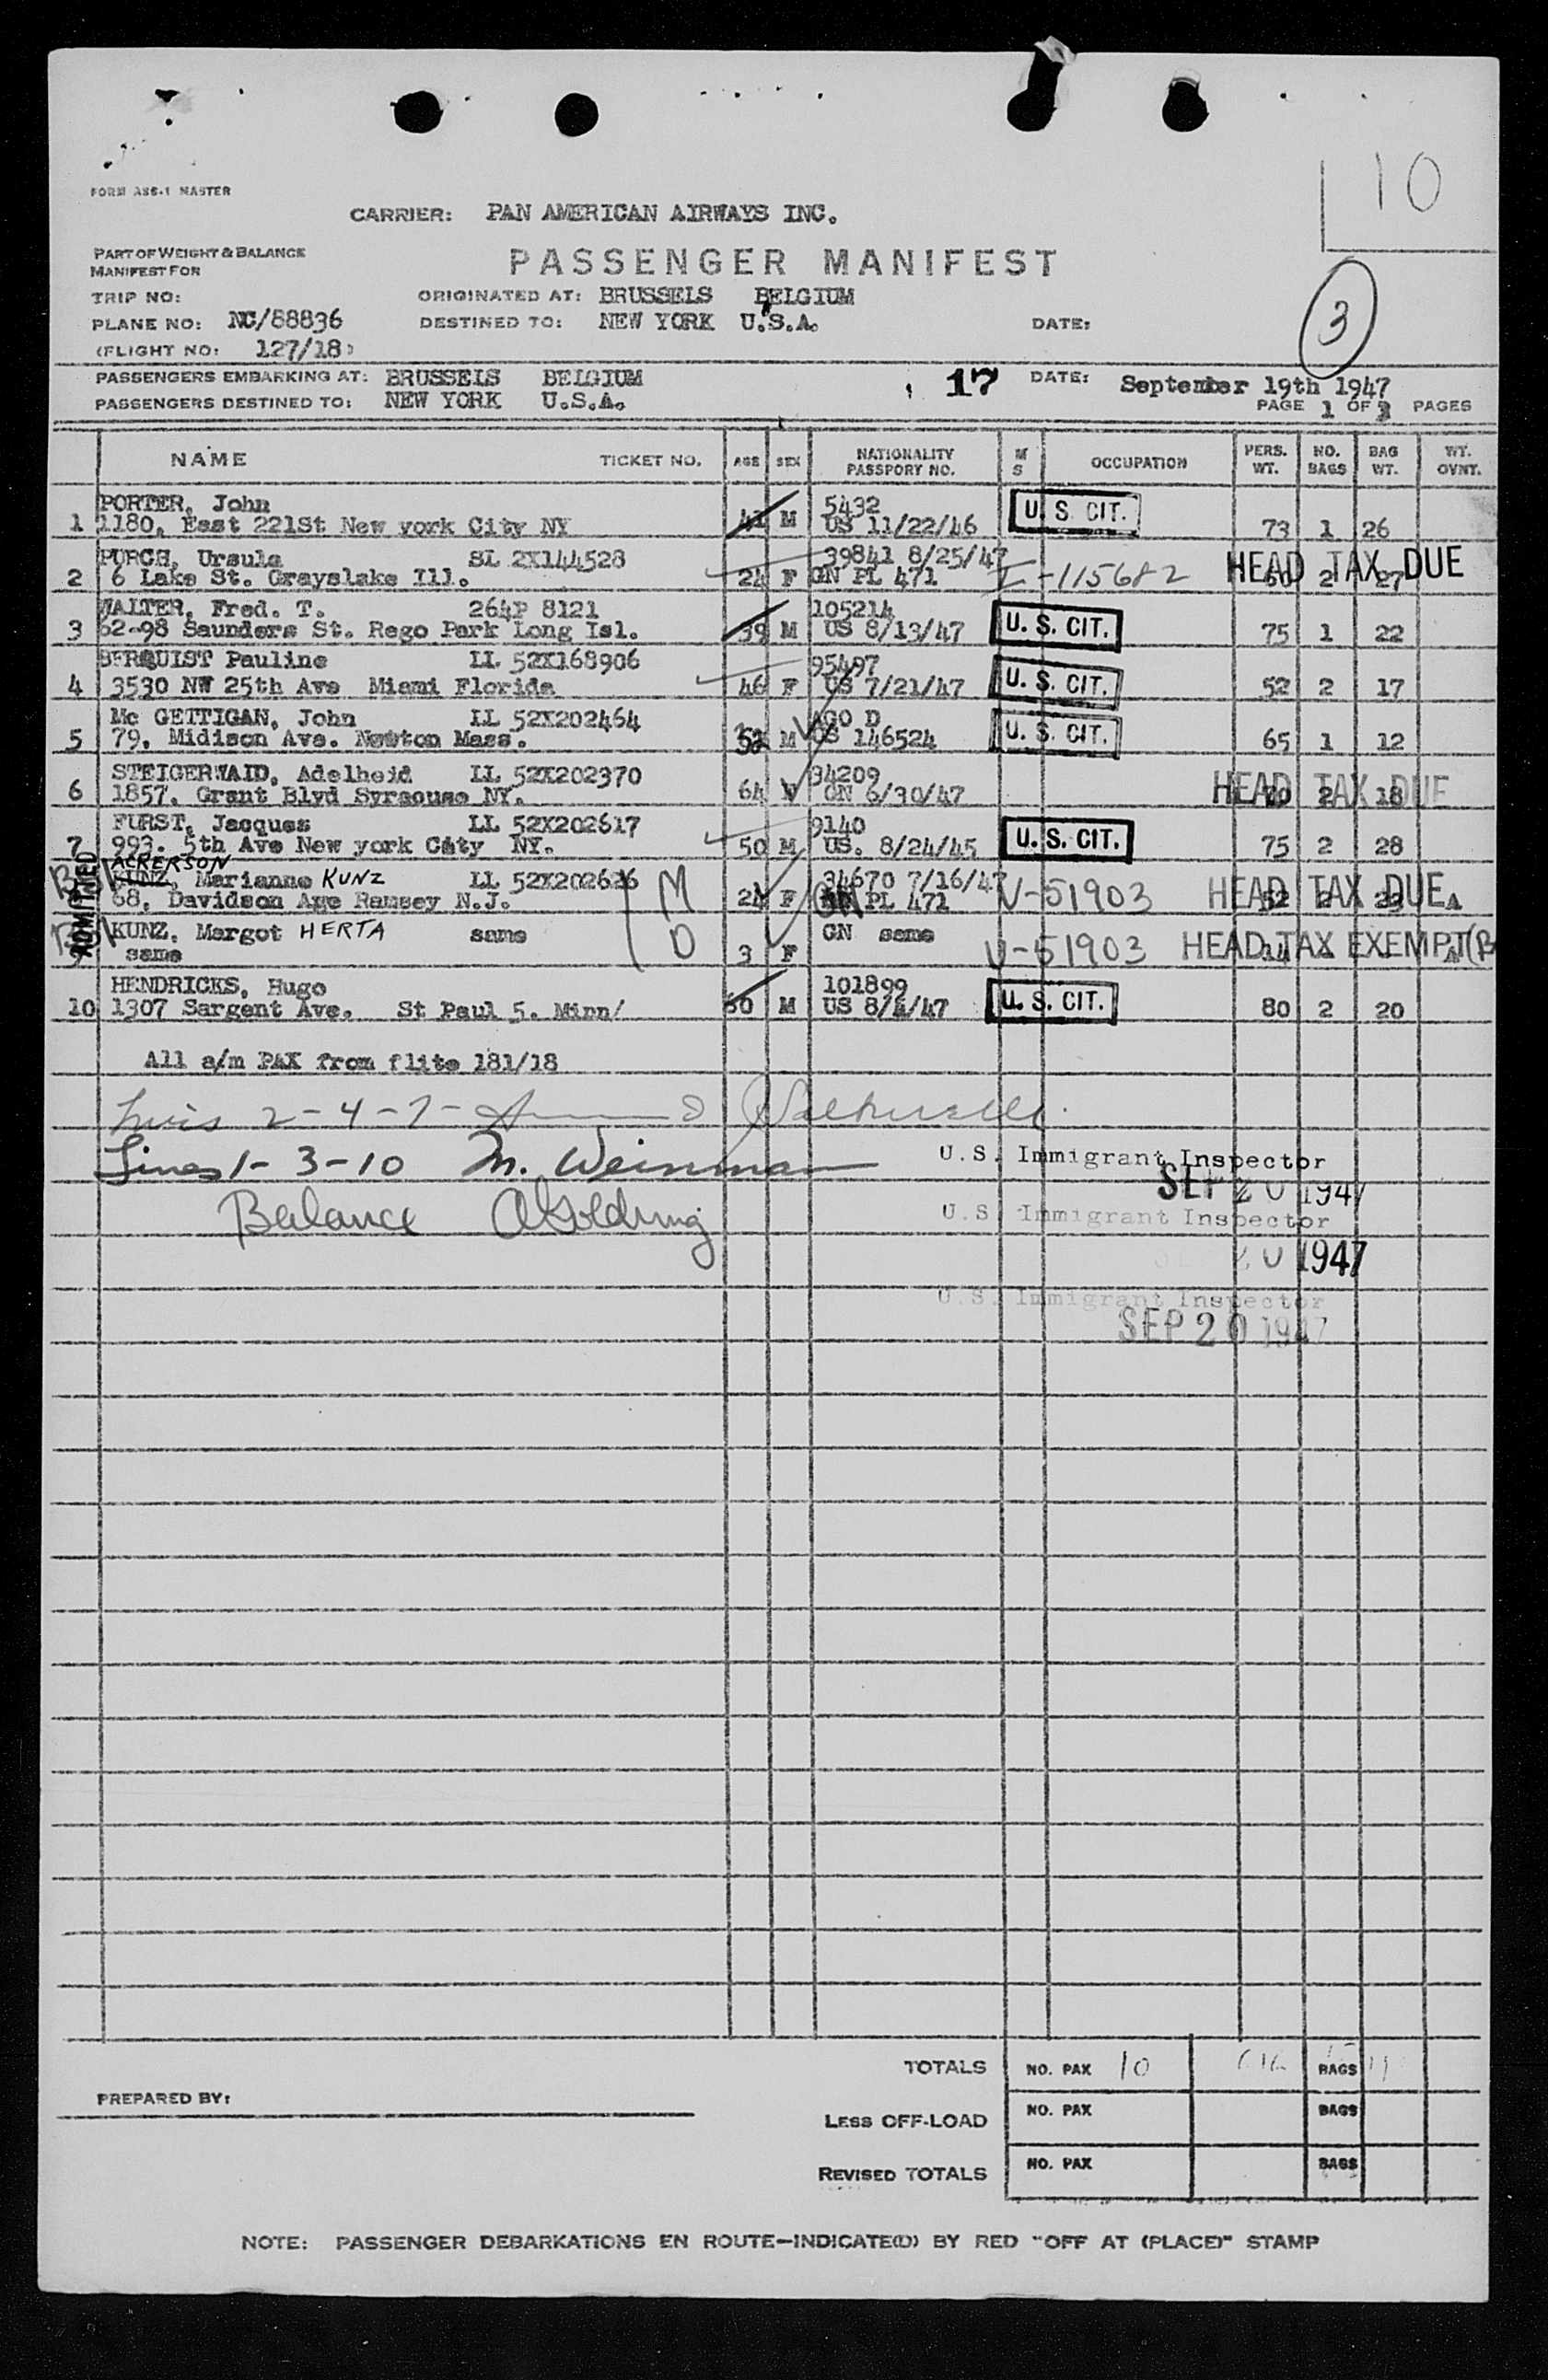 10
FORM ASS-1 MASTER
CARRIER: PAN AMERICAN AIRWAYS INC.
PART OF WEIGHT & BALANCE
MANIFEST FOR
PASSENGER MANIFEST
TRIP NO:
ORIGINATED AT: BRUSSELS BELGIUM
3
PLANE NO: NC/88836
DESTINED TO: NEW YORK U.S.A.
DATE:
(FLIGHT NO: 127/18)
PASSENGERS EMBARKING AT: BRUSSELS BELGIUM
17
DATE: September 19th 1947
PASSENGERS DESTINED TO: NEW YORK U.S.A.
PAGE 1 OF 3 PAGES
NAME TICKET NO. AGE SEX NATIONALITY PASSPORT NO. M S OCCUPATION PERS. WT. NO. BAGS BAG WT. WT. OVNT.
PORTER, John 5432 U.S. CIT.
1 1180, East 221St New york City NY 41 M US 11/22/46 73 1 26
PURCS, Ursula SL 2X144528 39841 8/25/47 HEAD TAX DUE
2 6 Lake St. Grayslake Ill. 24 F GN PL 471 I-115682 60 2 27
WALTER, Fred. T. 264P 8121 105214 U.S. CIT.
3 62-98 Saunders St. Rego Park Long Isl. 39 M US 8/13/47 75 1 22
BERQUIST Pauline LL 52X168906 95497 U.S. CIT.
4 3530 NW 25th Ave Miami Florida 46 F US 7/21/47 52 2 17
Mc GETTIGAN, John LL 52X202464 AGO D U.S. CIT.
5 79, Midison Ave. Newton Mass. M US 146524 65 1 12
STEIGERWAID, Adelheid LL 52X202370 34209 HEAD TAX DUE
6 1857. Grant Blvd Syracouse NY. 64 F GN 6/30/47 2 18
FURST, Jacques LL 52X202617 9140 U.S. CIT.
7 993. 5th Ave New york City NY. 50 M US. 8/24/45 75 2 28
ACKERSON
KUNZ, Marianne KUNZ LL 52X202626 M 34670 7/16/47 HEAD TAX DUE
68, Davidson Age Ramsey N.J. 24 F GN PL 471 V-51903 52 2 23
ADMITTED
KUNZ, Margot HERTA same D GN same V-51903 HEAD TAX EXEMPT
9 same 3 F 14
HENDRICKS, Hugo 101899 U.S. CIT.
10 1307 Sargent Ave. St Paul 5. Minn/ 60 M US 8/4/47 80 2 20
All a/m PAX from flite 181/18
2-4-7-
Lines 1-3-10 M. Weinman U.S. Immigrant Inspector
SEP 20 1947
Balance A Golding U.S. Immigrant Inspector
20 1947
U.S. Immigrant Inspector
SEP 20 1947
TOTALS NO. PAX 10 BAGS
PREPARED BY:
LESS OFF-LOAD NO. PAX BAGS
REVISED TOTALS NO. PAX BAGS
NOTE: PASSENGER DEBARKATIONS EN ROUTE—INDICATE(D) BY RED "OFF AT (PLACE)" STAMP